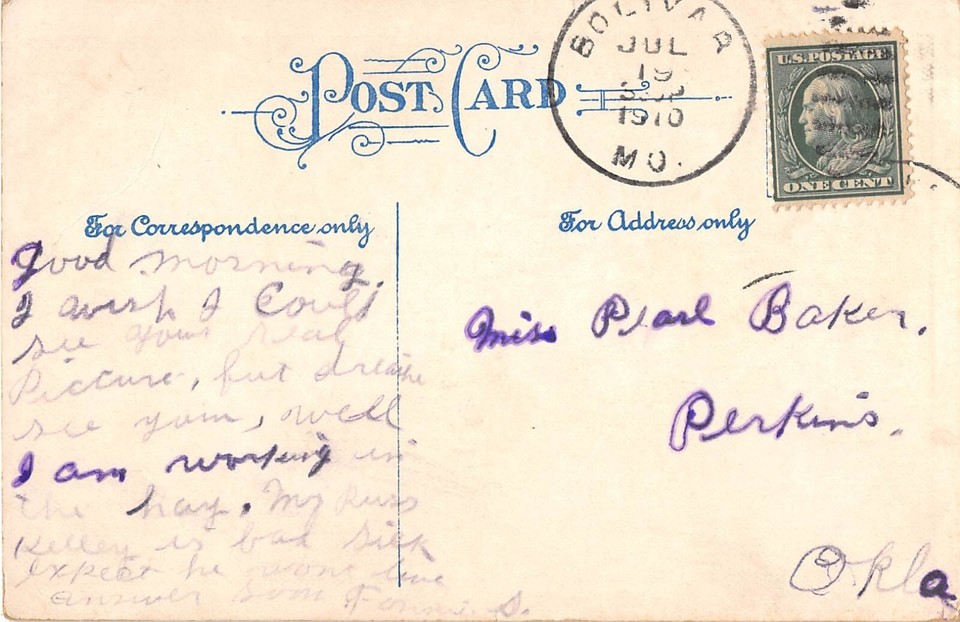 POST CARD
BOLIVAR
JUL
19
1910
MO.
U.S. POSTAGE
ONE CENT
For Correspondence only
For Address only
Good morning.
I wish I Could
see your real
Picture, but
see yours, well
I am working in
the hay. Mr Russ
Kelley is bad sick
expect he wont live
answer soon S.
Miss Pearl Baker.
Perkins.
Okla